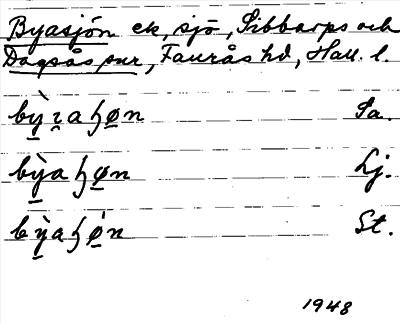 Byasjön ek, sjö, Sibbarps och
Dagsås snr, Faurås hd, Hall. l.
bỳ̱ɀaɧø̱n Sa.
bỳ̱aɧø̱n Lj.
bỳ̱aɧǿ̱n St.
1948